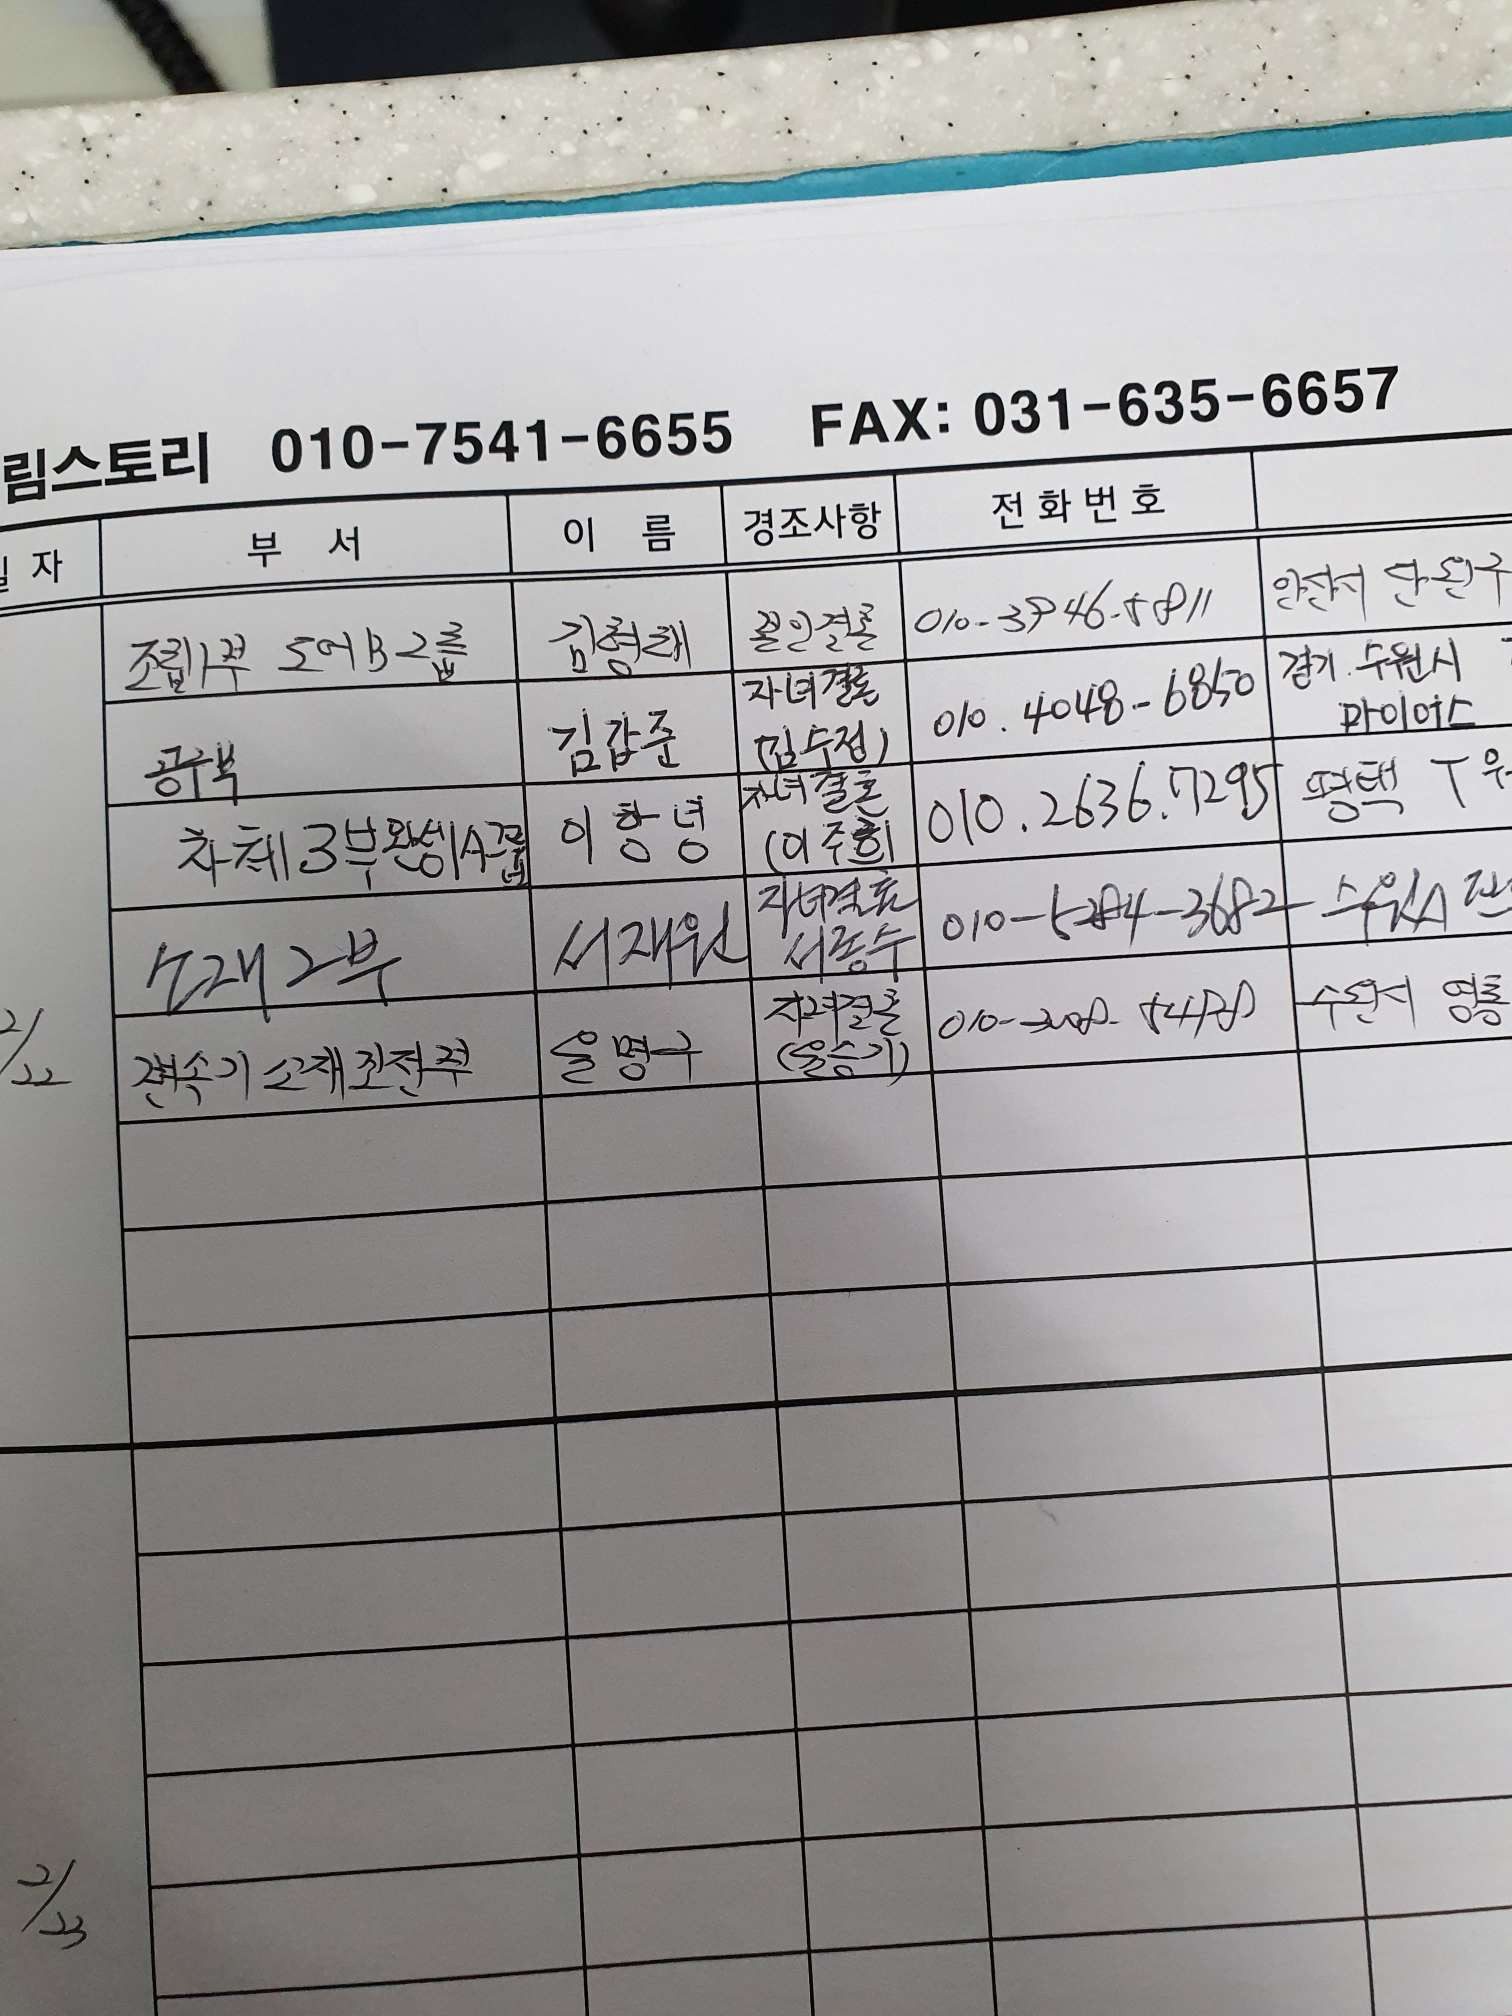 림스토리 010-7541-6655 FAX: 031-635-6657
일 자 부 서 이 름 경조사항 전 화 번 호
조립1부 도어B2룹 김형래 본인결혼 안산시 단원구
공수부 김갑준 자녀결혼 (김수정) 010.4048-6850 경기.수원시
마이어스
차체3부완성A그룹 이항녕 자녀결혼 (이주희 010.2636.7295 평택
소재2부 서재원 자녀결혼 서동수 010-5284-3682 수원시
2/22 변속기소재 명구 자녀결혼 수원시 영통
2/23